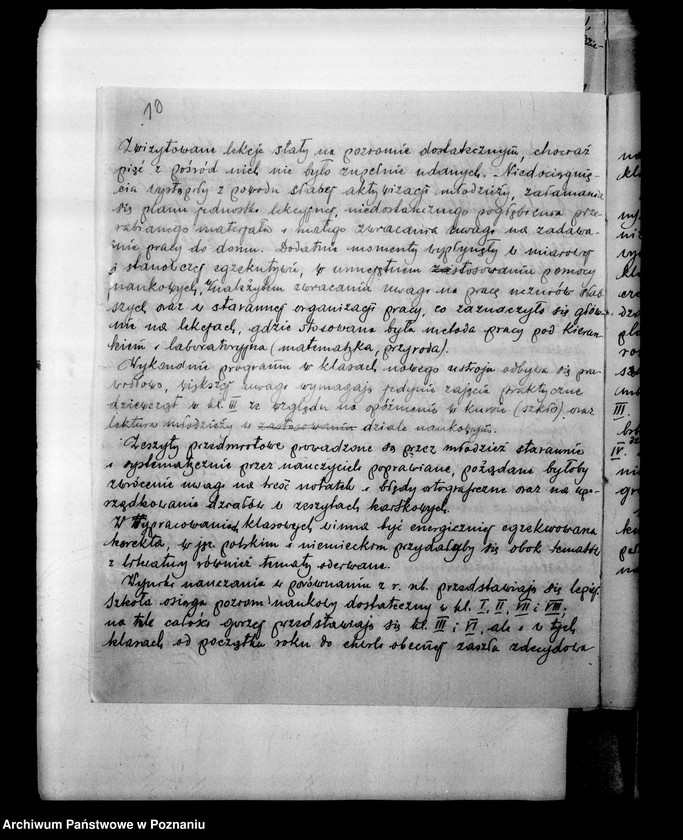 10
Zwizytowane lekcje stały na poziomie dostatecznym, chociaż
pięć z pośród nich nie było zupełnie udanych. Niedociągnię-
cia wystąpiły z powodu słabej aktywizacji młodzieży, załamania
się planu jednostki lekcyjnej, niedostatecznego pogłębienia prze-
rabianego materjału i małego zwracania uwagi na zadawa-
nie pracy do domu. Dodatnie momenty wypłynęły w miarowej
i stanowczej egzekutywie, w umiejętnem zastosowaniu pomocy
naukowych, należytem zwracaniu uwagi na pracę uczniów słab-
szych oraz w starannej organizacji pracy, co zaznaczyło się głów-
nie na lekcjach, gdzie stosowana była metoda pracy pod kierun-
kiem i laboratoryjna (matematyka, przyroda).
Wykonanie programu w klasach nowego ustroju odbywa się pra-
widłowo, większej uwagi wymagają jedynie zajęcia praktyczne
dziewcząt w kl. III ze względu na opóźnienie w kursie (szkło) oraz
lektura młodzieży w zastosowaniu dziale naukowym.
Zeszyty przedmiotowe prowadzone są przez młodzież starannie
i systematycznie przez nauczycieli poprawiane, pożądane byłoby
zwrócenie uwagi na treść notatek i błędy ortograficzne oraz na upo-
rządkowanie działów w zeszytach kartkowych.
W wypracowaniach klasowych winna być energiczniej egzekwowana
korekta, w jęz. polskim i niemieckim przydałyby się obok tematów
z literatury również tematy oderwane.
Wyniki nauczania w porównaniu z r. ub. przedstawiają się lepiej.
Szkoła osiąga poziom naukowy dostateczny w kl. I, II, VII i VIII;
na tle całości gorzej przedstawiają się kl. III i VI, ale i w tych
klasach od początku roku do chwili obecnej zaszła zdecydowa
Archiwum Państwowe w Poznaniu